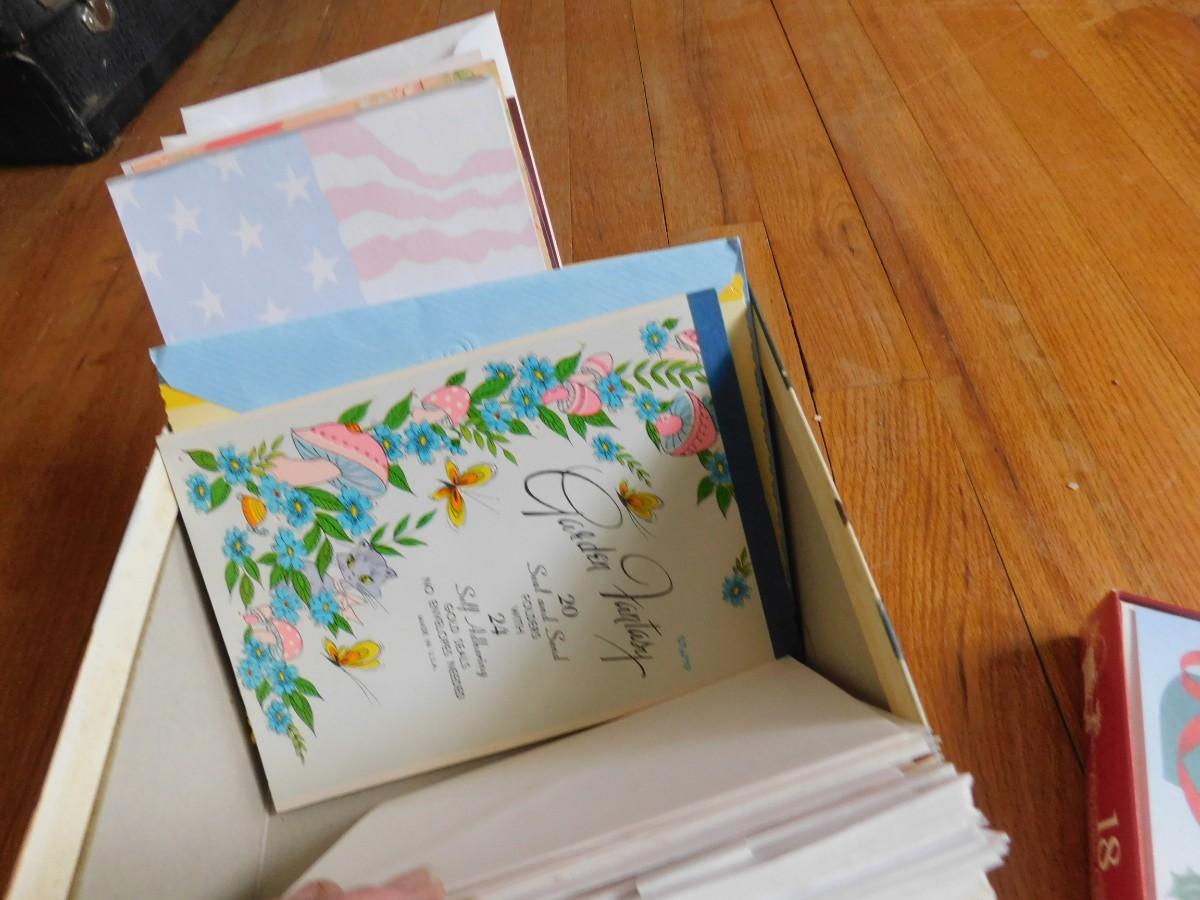 Garden Fantasy
20
Seal and Send
FOLDERS
WITH
24
Self Adhering
GOLD SEALS
NO ENVELOPES NEEDED
MADE IN U.S.A.
18